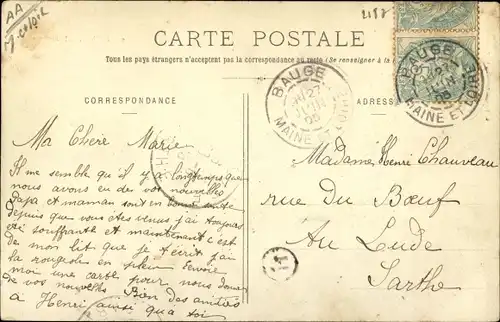 AA
2187
CARTE POSTALE
Tous les pays étrangers n'acceptent pas la correspondance au recto (Se renseigner à la
CORRESPONDANCE
ADRESSE
BAUGÉ
27
JUIN
05
MAINE ET LOIRE
BAUGÉ
MAINE ET LOIRE
Ma Chère Marie
Il me semble qu'il y a longtemps que
nous avons eu des vos nouvelles
Papa et maman sont en bonne santé
depuis que vous êtes venus j'ai toujours
été souffrante et maintenant c'est
de mon lit que je t'écris j'ai
la rougeole en plein envoie
moi une carte pour nous donner
de vos nouvelles Bien des amitiés
à Henri ainsi qu'à toi
Madame Henri Chauveau
rue du Bœuf
Au Lude
Sarthe